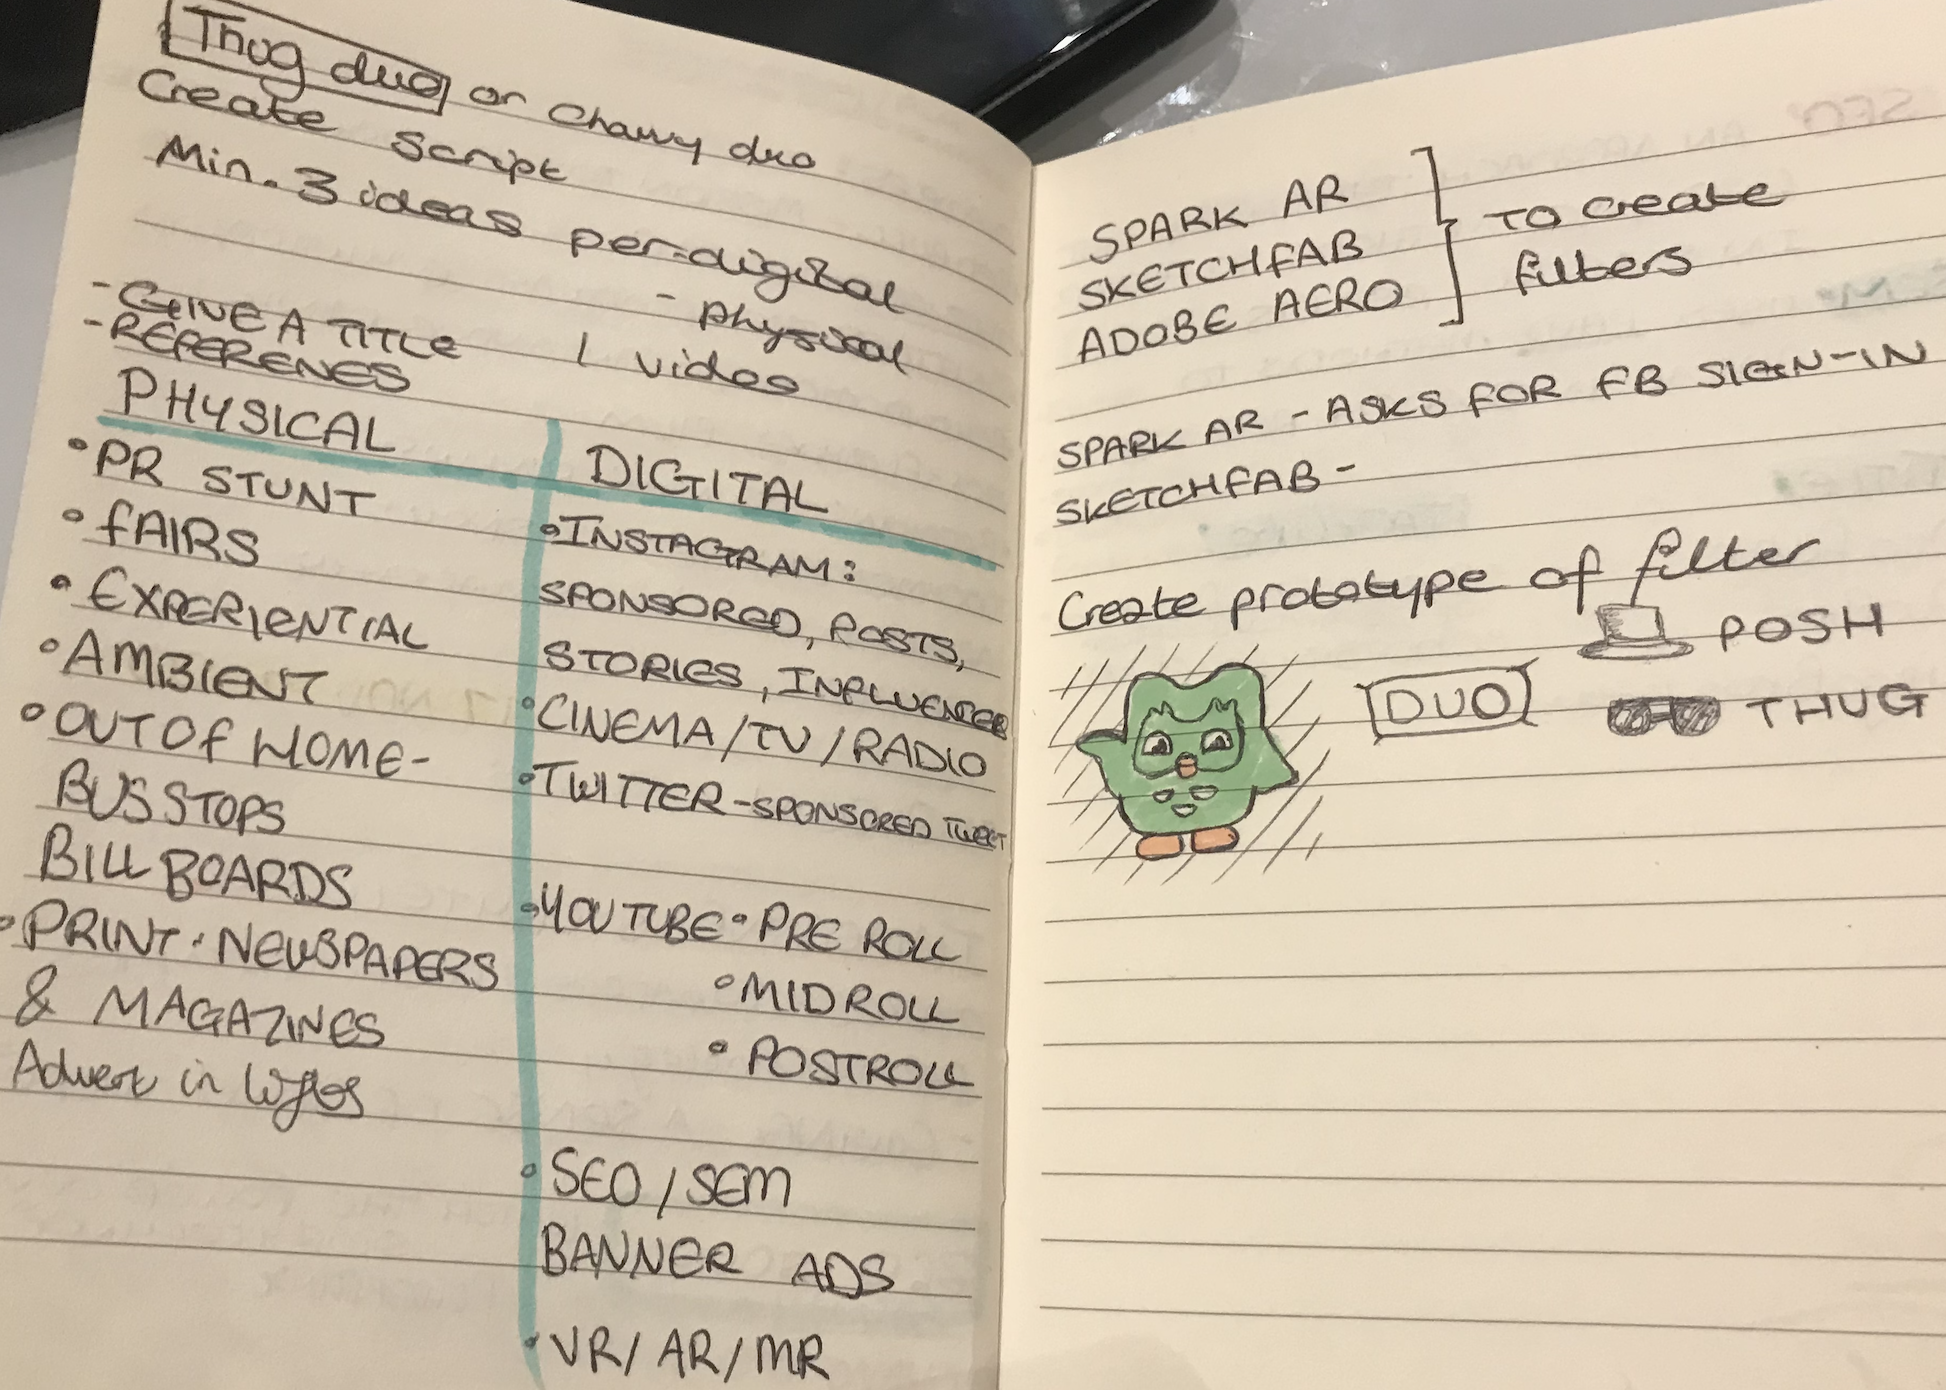 Thug duo or Chavvy duo
Create Script
Min. 3 ideas per-digital
- physical
- GIVE A TITLE
- REFERENES
1 video
PHYSICAL
• PR STUNT
• FAIRS
• EXPERIENTIAL
• AMBIENT
• OUT OF HOME-
BUS STOPS
BILL BOARDS
• PRINT • NEWSPAPERS
& MAGAZINES
Advert in
DIGITAL
• INSTAGRAM:
SPONSORED, POSTS,
STORIES, INFLUENCER
• CINEMA/TV/RADIO
• TWITTER-SPONSORED TWEET
• YOUTUBE • PRE ROLL
• MIDROLL
• POSTROLL
• SEO/SEM
BANNER ADS
• VR/AR/MR
SPARK AR
SKETCHFAB
ADOBE AERO
TO create
filters
SPARK AR - ASKS FOR FB SIGN-IN
SKETCHFAB -
Create prototype of filter
POSH
DUO
THUG